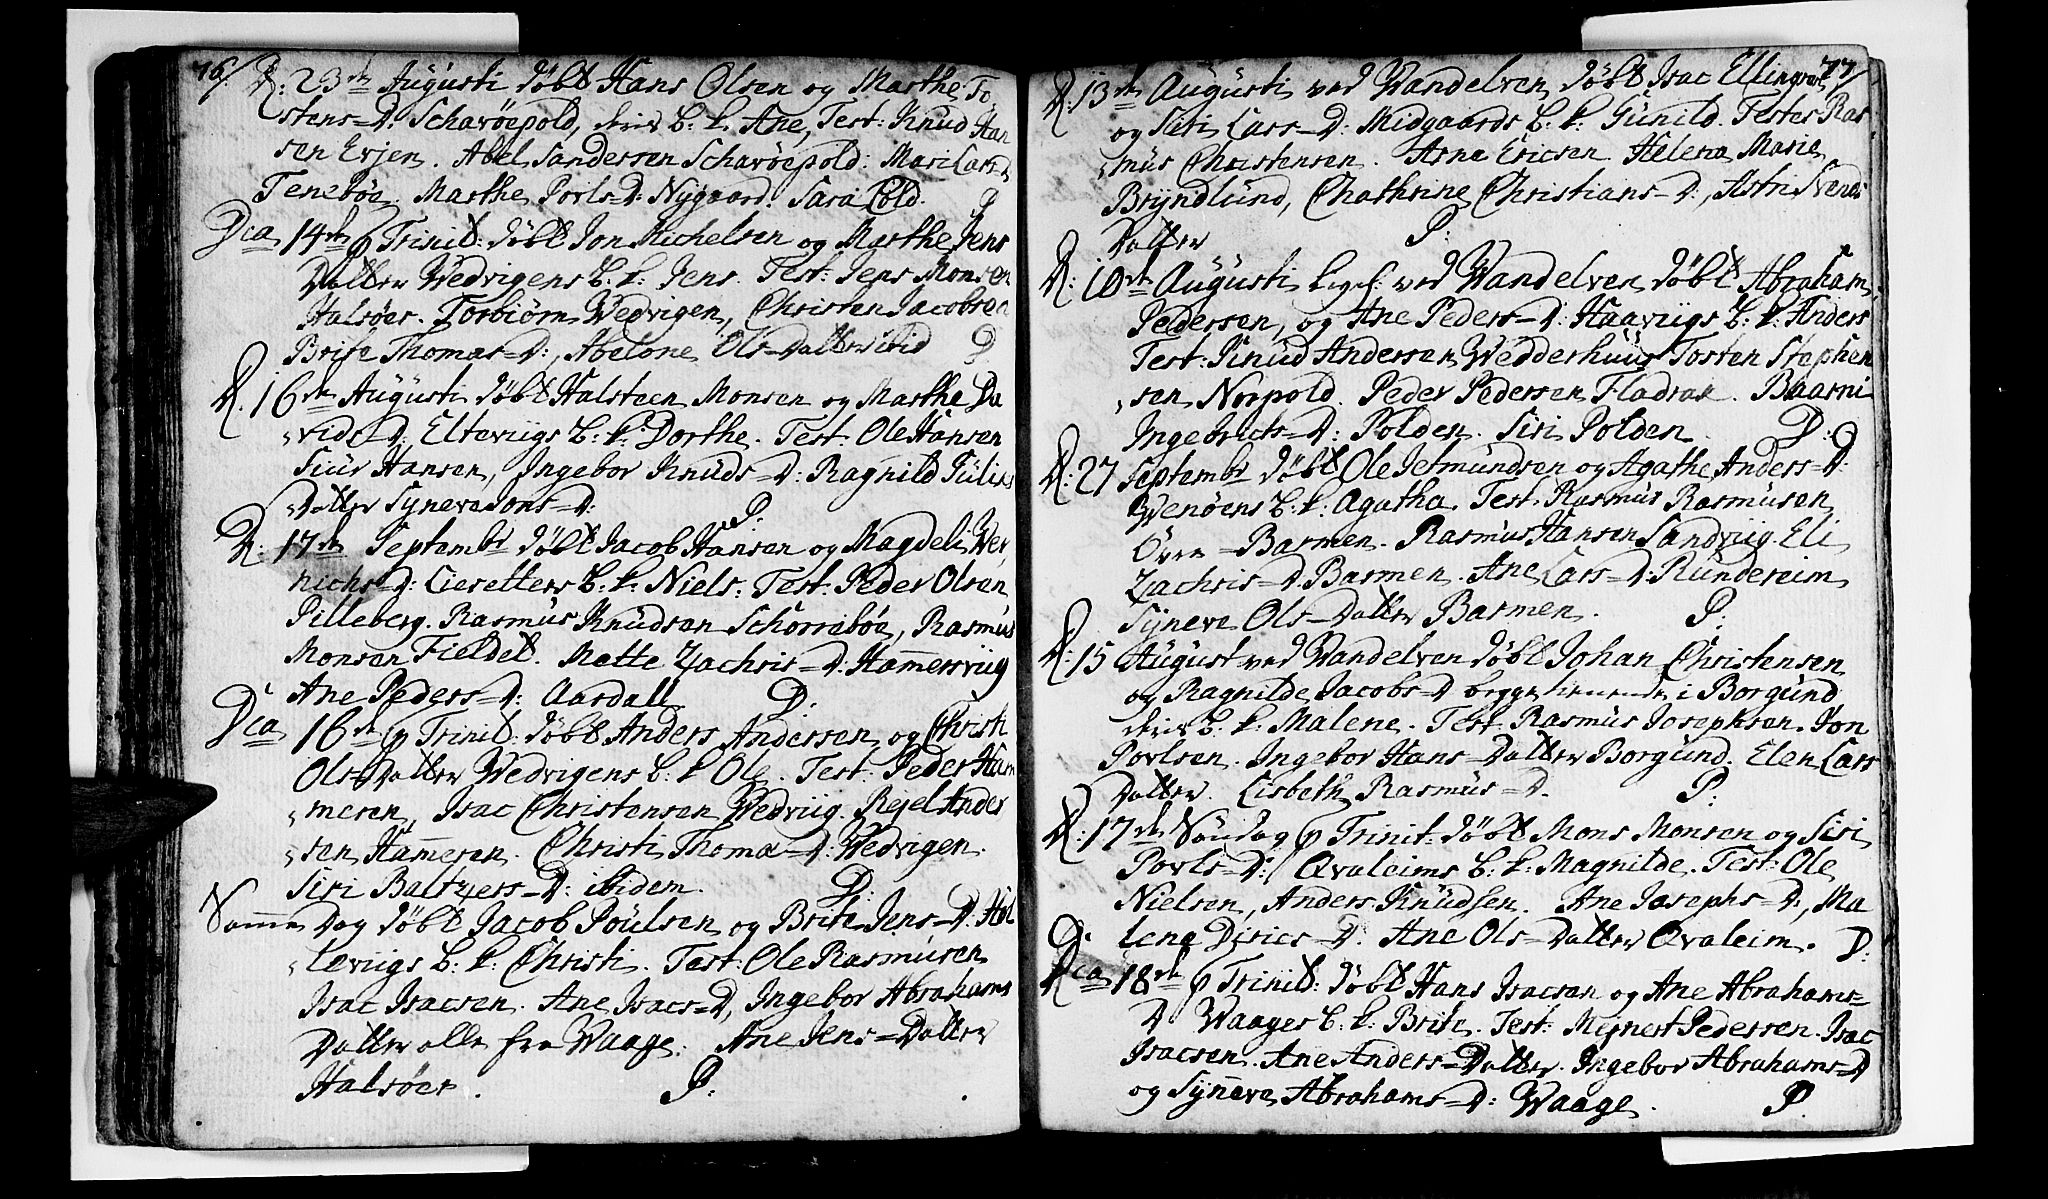 76/
D: 23de Augusti döbt Hans Olsen og Marthe To
stens=D: Scharöepold, deris b: k. Ane, Test: Knud Han
sen Erjen. Abel Sanderssen Scharöepold: Mari Lars=D
Teneböe. Marthe Povls=D: Nygaard. Sara Cold. P
Dca 14de p Trinit: döbt Jon Michelsen og Marthe Jens
Datter Wedvigens b: k: Jens. Test: Jens Monsen
Halsöer. Torbiörn Wedvigen, Christen Jacobsen
Brite Thomæ=D:, Abelone Ols=Datter ibid P
D. 16de Augusti döbt Halsteen Monsen og Marthe Da
vids=D: Eltevigs b: k: Dorthe. Test: Ole Hansen
Siur Hansen, Ingebor Knuds=D: Ragnild
Datter Syneve Jons=D: P:
D: 17de Septembr döbt Jacob Hansen og Magdeli Wer
nichs=D: Liesetters b: k: Niels: Test: Peder Olsen
Pilleberg. Rasmus Knudsen Schorreböe, Rasmus
Monsen Fieldet. Mette Zachris=D: Hamersviig
Ane Peders=D: Aardall P.
Dca 16de p Trinit: döbt Anders Andersen og Christi
Ols=Datter Wedvigens b: k Ole. Test: Peder Ham
meren, Isac Christensen Wedviig. Rejel Ander
sen Hameren. Christi Thomæ=D: Wedvigen.
Siri Baltzers=D: ibidem. P:
Samme Dag döbt Jacob Poulsen og Brite Jens=D: Hol
levigs b: k: Christi. Test: Ole Rasmusen
Isac Isacsen. Ane Isacs=D, Ingebor Abrahams
Datter alle fra Waage. Ane Jens=Datter
Halsöer. P:
77/
D: 13de Augusti ved Vandelven döbt Isac Ellingsen
og Siri Lars=D: Midgaards b: k: Gunild. Testes Ras
mus Christensen. Arne Ericsen Helena Marie
Bryndlund, Chathrine Christians=D:, Astri Svends
Datter P:
D: 10de Augusti ved Vandelven döbt Abraham
Pedersen, og Ane Peders=D: Haavigs b: k: Anders
Test: Knud Andersen Wedderhuus Tosten Stephen
sen Norpold. Peder Pedersen Fladvær. Baarni
Ingebrichs=D: Polden. Siri Polden. P:
D: 27 Septembr döbt Ole Jetmundsen og Agathe Anders=D:
Wenöens b: k: Agatha. Test. Rasmus Rasmusen
Övre=Barmen. Rasmus Hansen Sandviig. Eli
Zachris=D. Barmen. Ane Lars=D: Rundereim
Syneve Ols=Datter Barmen. P:
D: 15 August ved Vandelven döbt Johan Christensen
og Ragnilde Jacobs=D begge tienende i Borgund
deris b: k: Malene. Test Rasmus Josephsen. Jon
Povlsen. Ingebor Hans=Datter Borgund. Elen Lars
Datter. Lisbeth Rasmus=D. P:
D: 17de Söndag p Trinit: döbt Mons Monsen og Siri
Povls=D: Qvaleims b: k: Magnilde. Test: Ole
Nielsen, Anders Knudsen. Ane Josephs=D:, Ma
lene Dirics=D. Ane Ols=Datter Qvaleim. P:
Dca 18de p Trinit: döbt Hans Isacsen og Ane Abrahams=
D. Waages b: k. Brite. Test: Mejnert Pedersen. Isac
Isacsen. Ane Anders=Datter. Ingebor Abrahams=D
og Syneve Abrahams=D: Waage. P.